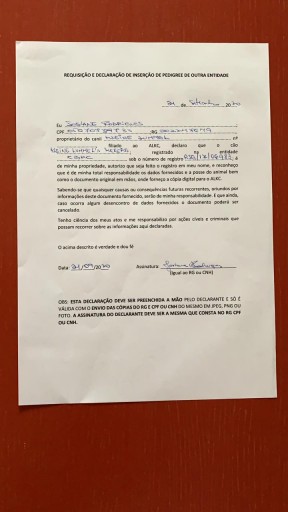 REQUISIÇÃO E DECLARAÇÃO DE INSERÇÃO DE PEDIGREE DE OUTRA ENTIDADE
21 de Setembro 20 20
Eu
CPF RG
proprietário do canil nº
filiado ao ALKC, declaro que o cão
registrado na entidade
sob o número de registro e
de minha propriedade, autorizo que seja feito o registro em meu nome, e reconheço
que é de minha total responsabilidade os dados fornecidos e a posse do animal bem
como o documento original em mãos, onde forneço a cópia digital para o ALKC.
Sabendo se que quaisquer causas ou consequências futuras recorrentes, oriundos por
informações deste documento fornecidos, serão de minha responsabilidade. E que ainda,
caso ocorra algum desencontro de dados fornecidos o documento poderá ser
cancelado.
Tenho ciência dos meus atos e me responsabilizo por ações cíveis e criminais que
possam recorrer sobre as informações aqui declaradas.
O acima descrito é verdade e dou fé
Data: 21/09/2020 Assinatura
(Igual ao RG ou CNH)
OBS: ESTA DECLARAÇÃO DEVE SER PREENCHIDA A MÃO PELO DECLARANTE E SÓ É
VÁLIDA COM O ENVIO DAS CÓPIAS DO RG E CPF OU CNH DO MESMO EM JPEG, PNG OU
FOTO. A ASSINATURA DO DECLARANTE DEVE SER A MESMA QUE CONSTA NO RG CPF
OU CNH.